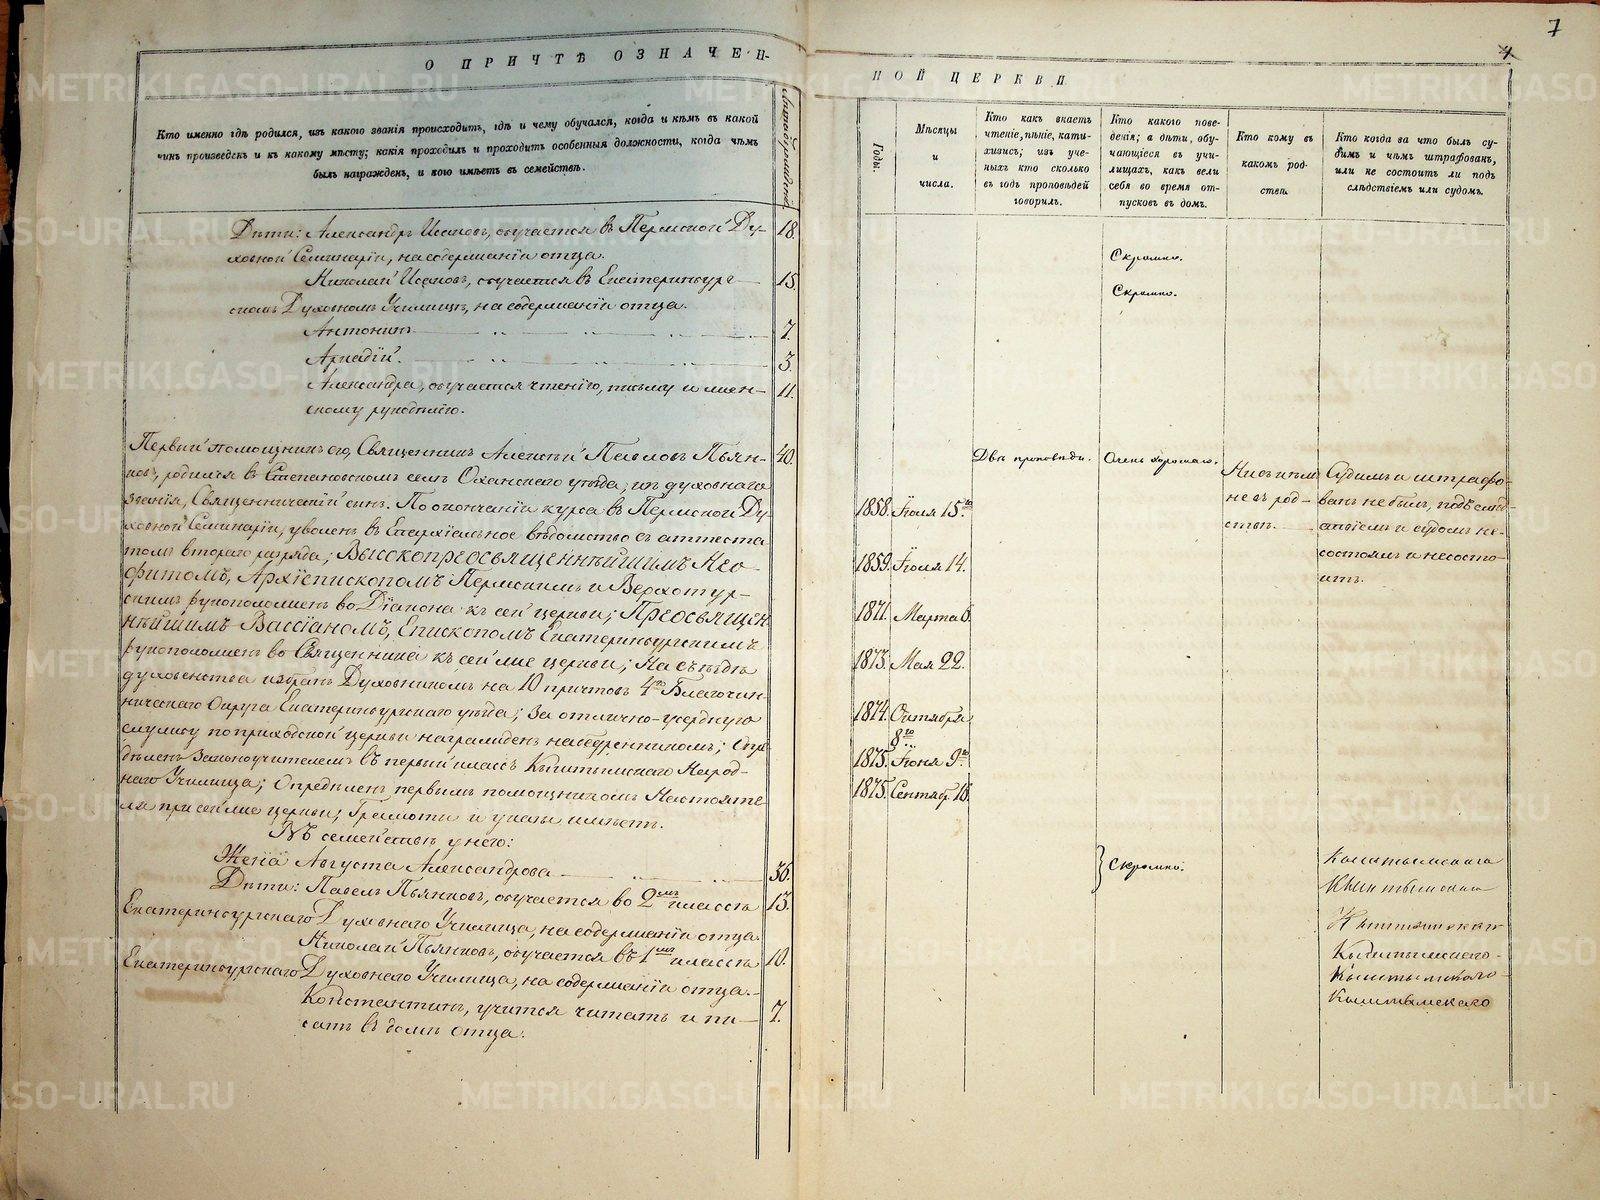 7
О ПРИЧТѢ ОЗНАЧЕН-
НОЙ ЦЕРКВИ
Кто именно гдѣ родился, изъ какого званія происходитъ, гдѣ и чему обучался, когда и кѣмъ въ какой
чинъ произведенъ и къ какому мѣсту; какія проходилъ и проходитъ особенныя должности, когда чѣмъ
былъ награжденъ, и кого имѣетъ въ семействѣ.
Дѣти: Александръ Исаковъ, обучается въ Пермской Ду- 18.
ховной Семинаріи, на содержаніи отца.
Николай Исаковъ, обучается въ Екатеринбург- 15.
скомъ Духовномъ Училищѣ, на содержаніи отца.
Антонинъ 7.
Аркадій. 3.
Александра, обучается чтенію, письму и жен- 11.
скому рукодѣлію.
Первый помощникъ его, Священникъ Алексѣй Павловъ Пьян- 40.
ковъ, родился въ Степановскомъ селѣ Оханскаго уѣзда, изъ духовнаго
званія, Священническій сынъ. По окончаніи курса въ Пермской Ду-
ховной Семинаріи, уволенъ въ Епархіальное вѣдомство съ аттеста-
томъ втораго разряда; Высокопреосвященнѣйшимъ Нео-
фитомъ, Архіепископомъ Пермскимъ и Верхотур-
скимъ рукоположенъ во Діакона къ сей церкви; Преосвящен
нѣйшимъ Вассіаномъ, Епископомъ Екатеринбургскимъ
рукоположенъ во Священника къ сей же церкви; На съѣздѣ
духовенства избранъ Духовникомъ на 10 причтовъ 4го Благочин-
ническаго Округа Екатеринбургскаго уѣзда; За отлично-усердную
службу по приходской церкви награжденъ набедренникомъ; Опре
дѣленъ Законоучителемъ въ первый классъ Кыштымскаго Народ-
наго Училища; Опредѣленъ первымъ помощникомъ Настояте-
ля при сей же церкви; Грамоты и указы имѣетъ.
Въ семействѣ у него:
Жена Августа Александрова 36.
Дѣти: Павелъ Пьянковъ, обучается во 2мъ классѣ 13.
Екатеринбургскаго Духовнаго Училища, на содержаніи отца.
Николай Пьянковъ, обучается въ 1мъ классѣ 10.
Екатеринбургскаго Духовнаго Училища, на содержаніи отца.
Константинъ, учится читать и пи- 7.
сать въ домѣ отца.
Годы.
Мѣсяцы
и
числа.
Кто какъ знаетъ
чтеніе, пѣніе, кати-
хизисъ; изъ уче-
ныхъ кто сколько
въ годъ проповѣдей
говорилъ.
Кто какого пове-
денія; а дѣти, обу-
чающіеся въ учи-
лищахъ, какъ вели
себя во время от-
пусковъ въ домъ.
Кто кому въ
какомъ род-
ствѣ.
Кто когда за что былъ су-
димъ и чѣмъ штрафованъ,
или не состоитъ ли подъ
слѣдствіемъ или судомъ.
Скромно.
Скромно.
Двѣ проповѣди.
Очень хорошаго.
Ни съ кѣмъ
не въ род-
ствѣ.
Судимъ и штрафо-
ванъ не былъ, подъ слѣд-
ствіемъ и судомъ не-
состоялъ и несосто-
итъ.
1858. Іюля 15го
1859. Іюля 14.
1871. Марта 6.
1873. Мая 22.
1874. Октября
8го
1875. Іюня 9го
1875. Сентяб. 18.
Скромно.
Кыштымскаго
Кыштымскаго
Кыштымскаго
Кыштымскаго